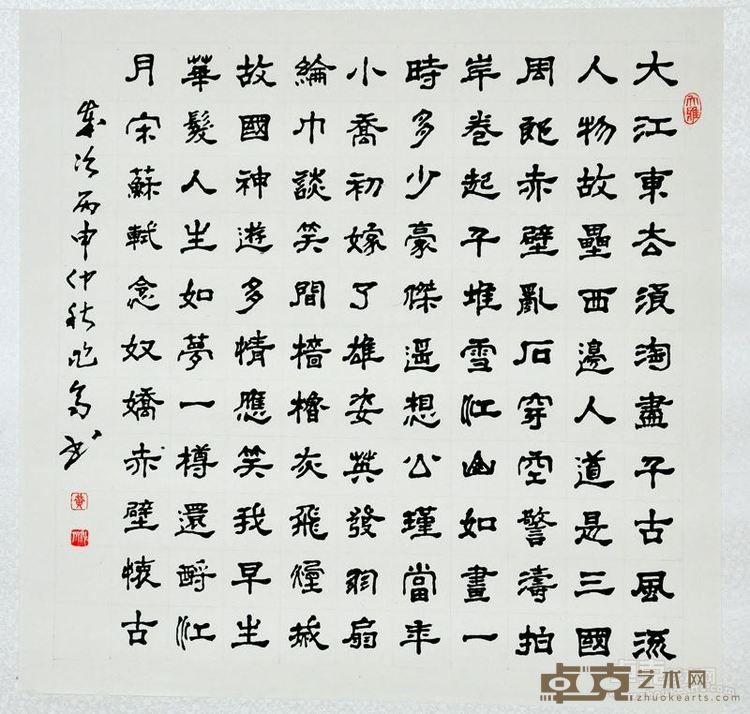 大江東去浪淘盡千古風流
人物故壘西邊人道是三國
周郎赤壁亂石穿空警濤拍
岸卷起千堆雪江山如畫一
時多少豪傑遥想公瑾當年
小喬初嫁了雄姿英發羽扇
綸巾談笑間檣櫓灰飛煙滅
故國神遊多情應笑我早生
華髮人生如夢一樽還酹江
月宋蘇軾念奴嬌赤壁懷古
歲次丙申仲秋書
卓克艺术网
zhuokearts.com